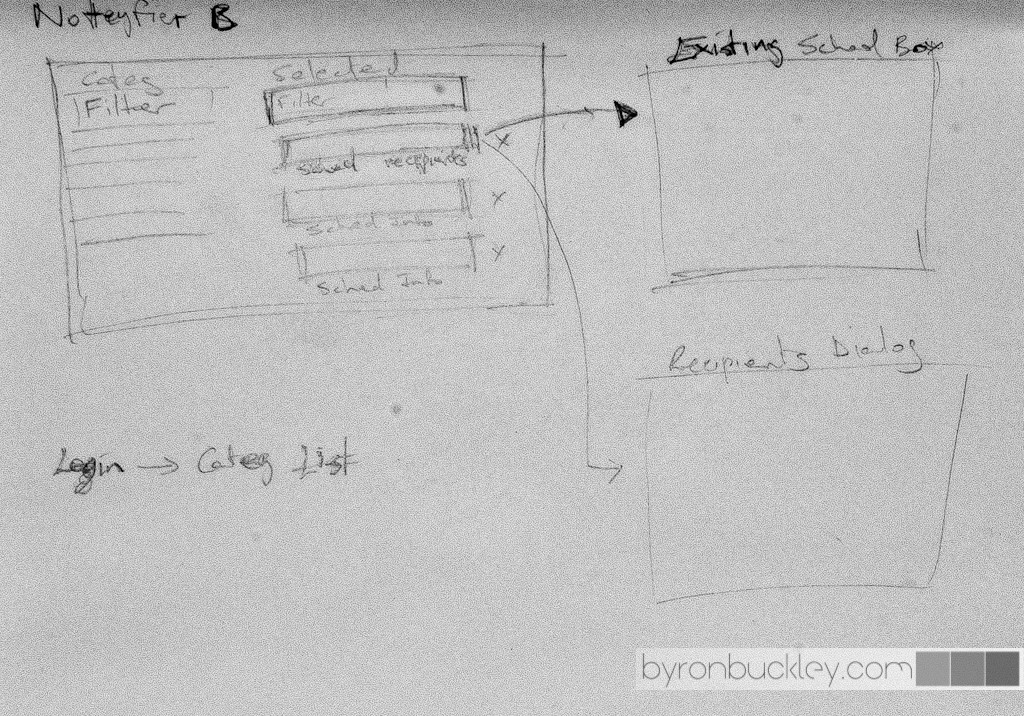 Notteyfier B
Categ
Filter
Selected
Filter
Sched recipients
X
Sched Info
X
Sched Info
X
Existing Sched Box
Recipients Dialog
Login → Categ List
byronbuckley.com